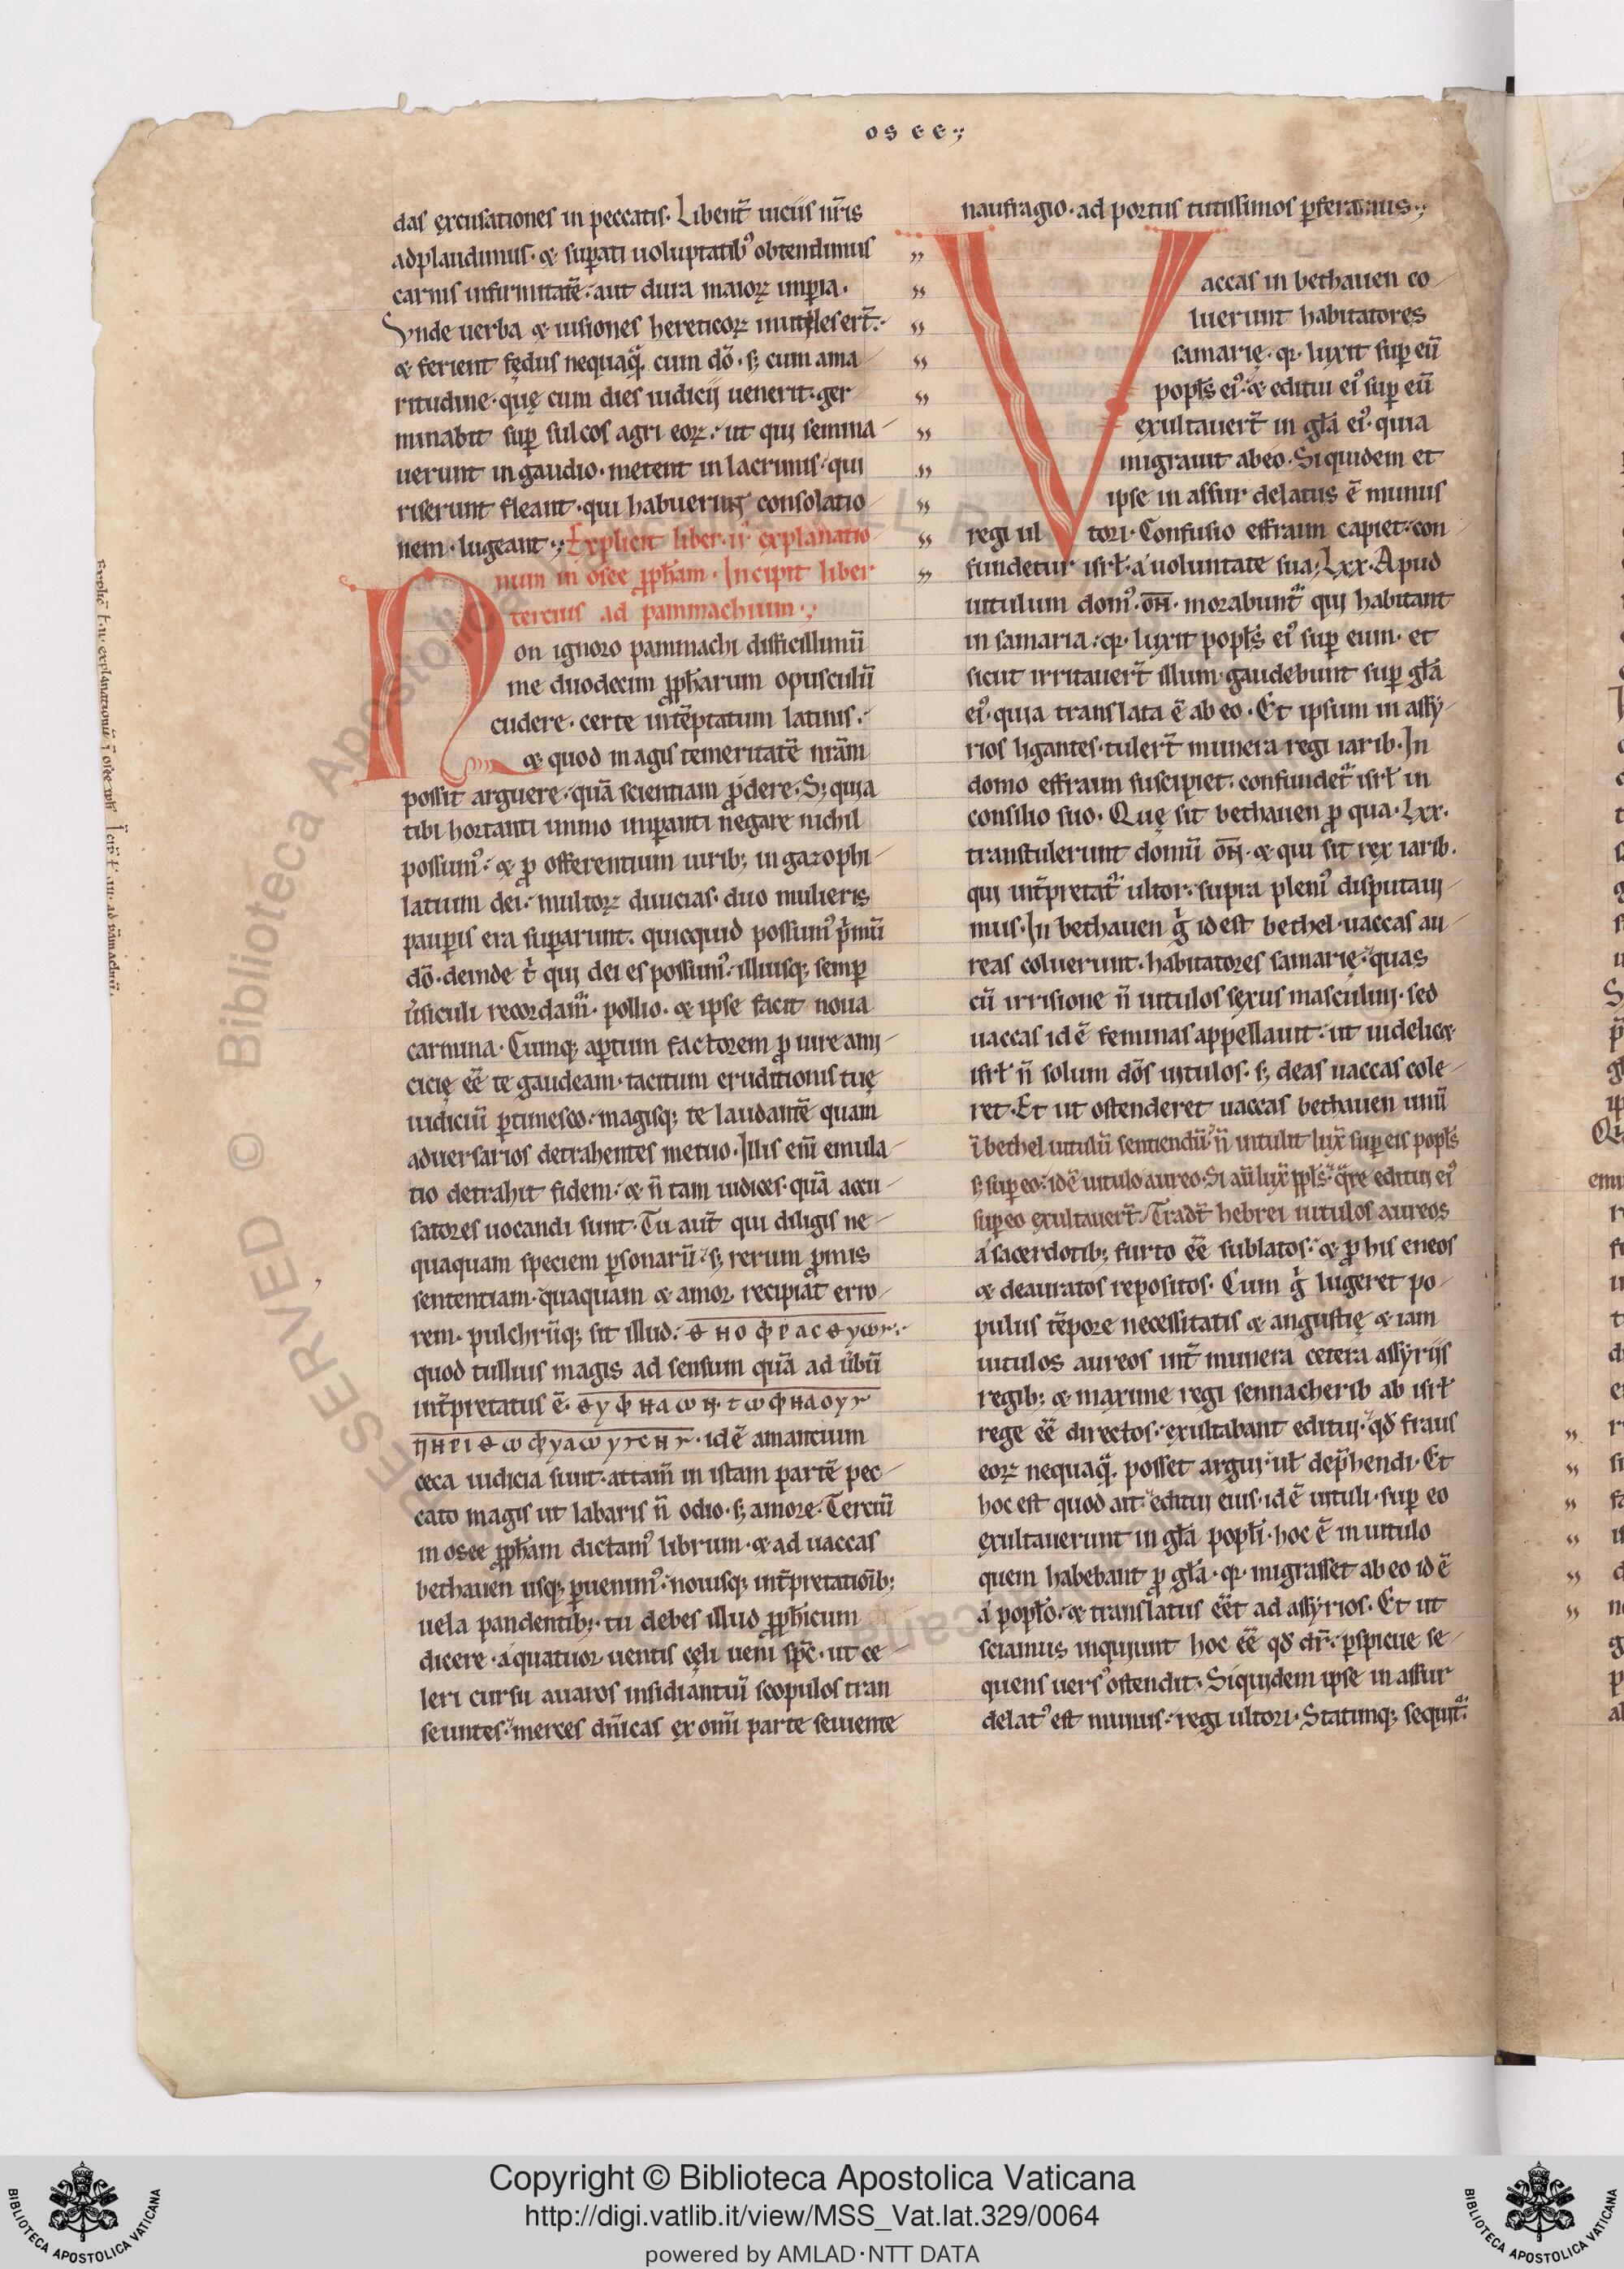 osee·;
das excusationes in peccatis. Libent̄ uiciis nr̄is
adplaudimus. & sup̄ati uoluptatibꝰ obtendimus
carnis infirmitatē: aut dura maioꝝ imp̄ia.
Vnde uerba & uisiones hereticoꝝ inutiles ert̄:
& ferient fędus nequaq̄. cum dō. sꝫ cum ama-
ritudine. quę cum dies iudicij uenerit: ger-
minabit sup̄ sulcos agri eoꝝ: ut qui semina-
uerunt in gaudio. metent in lacrimis. qui
riserunt fleant. qui habuerunt consolatio-
nem. lugeant·; Explicit liber. ii. explanatio-
num in osee ꝓph̄am. Incipit liber
tercius ad pammachium·;
Non ignoro pammachi difficillimū
me duodecim ꝓph̄arum opusculū
cudere. certe int̄ēptatum latinis:
& quod magis temeritatē nr̄am
possit arguere. quā scientiam ꝓdere. Sꝫ quia
tibi hortanti immo imp̄anti negare nichil
possumꝰ: & ꝓ offerentium uiribꝫ in gazophi-
latium dei: multoꝝ diuicias. duo mulieris
paup̄is era sup̄arunt. quicquid possumꝰ p̄mū
dō. deinde t̄ qui dei es possumꝰ: illiusqꝫ semp̄
u̓siculi recordam̄. pollio. & ipse facit noua
carmina. Cumqꝫ aptum factorem ꝓ iure ami-
cicię ēē te gaudeam. tacitum eruditionis tuę
iudiciū ꝑtimesco: magisqꝫ te laudantē quam
aduersarios detrahentes metuo. Illis em̄ emula-
tio detrahit fidem: & n̄ tam iudices. quā accu-
satores uocandi sunt. Tu aut̄ qui diligis ne-
quaquam speciem ꝑsonarū: sꝫ rerum ꝓmis
sententiam. quaquam & amor recipiat erro-
rem. pulchrūqꝫ sit illud:
quod tullius magis ad sensum quā ad u̓bū
int̄pretatus ē.
idē amantium
ceca iudicia sunt. attam̄ in istam partē pec-
cato magis ut labaris n̄ odio. sꝫ amore. Terciū
in osee ꝓph̄am dictamꝰ librum. & ad uaccas
bethauen usqꝫ ꝑuenimꝰ: nouisqꝫ int̄pretationibꝫ
uela pandentibꝫ. tu debes illud ꝓph̄icum
dicere. a quatuor uentis cęli ueni sp̄c. ut ce-
leri cursu auaros insidiantiū scopulos tran
seuntes. merces dn̄icas ex omī parte seuiente
naufragio. ad portus tutissimos ꝑferamus·;
Vaccas in bethauen co-
luerunt habitatores
samarię. qꝛ luxit sup̄ eū
popl̄s eiꝰ: & editui eiꝰ sup̄ eū
exultauert̄ in gl̄a eiꝰ. quia
migrauit ab eo. Siquidem et
ipse in assur delatus ē munus
regi ultori. Confusio effraim capiet: con-
fundetur isrl̄. a uoluntate sua; Lxx. Apud
uitulum domꝰ. ōn. morabunt̄ qui habitant
in samaria: qꝛ luxit popl̄s eiꝰ sup̄ eum. et
sicut irritauert̄ illum. gaudebunt sup̄ gl̄a
eiꝰ. quia translata ē ab eo. Et ipsum in assy-
rios ligantes. tulert̄ munera regi iarib. In
domo effraim suscipiet. confundet̄ isrl̄ in
consilio suo. Quę sit bethauen ꝓ qua. Lxx.
transtulerunt domū ōn. & qui sit rex iarib.
qui int̄pretat̄ ultor. supra pleniꝰ disputaui-
mus. In bethauen g̓ id est bethel. uaccas au-
reas coluerunt. habitatores samarię: quas
cū irrisione n̄ uitulos sexus masculini. sed
uaccas id ē feminas appellauit: ut uidelic&
isrl̄ n̄ solum dōs uitulos. sꝫ deas uaccas cole-
ret. Et ut ostenderet uaccas bethauen unū
ī bethel uitulū sentiendū. n̄ intulit lux̄ sup̄ eis popl̄s
sꝫ sup̄ eo: idē uitulo aureo. Si aū lux̄ ppl̄s. q̄re editui eiꝰ
sup̄ eo exultauert̄. Tradt̄ hebrei uitulos aureos
a sacerdotibꝫ furto ēē sublatos: & ꝓ his eneos
& deauratos repositos. Cum g̓ lugeret po-
pulus tēpore necessitatis & angustię & iam
uitulos aureos int̄ munera cetera assyriis
regibꝫ & maxime regi sennacherib ab isrl̄
rege ēē directos: exultabant editui: qd̄ fraus
eoꝝ nequaq̄. posset argui. ul̄ dep̄hendi. Et
hoc est quod ait: editui eius. id ē uituli. sup̄ eo
exultauerunt in gl̄a popl̄i. hoc ē in uitulo
quem habebant ꝓ gl̄a. qꝛ migrasset ab eo id ē
a popl̄o: & translatus ēēt ad assyrios. Et ut
sciamus inquiunt hoc ēē qd̄ dr̄: ꝑspicue se-
quens uersꝰ ostendit. Siquidem ipse in assur
delatꝰ est munus: regi ultori. Statimqꝫ sequit̄:
Copyright © Biblioteca Apostolica Vaticana
http://digi.vatlib.it/view/MSS_Vat.lat.329/0064
powered by AMLAD·NTT DATA
BIBLIOTECA APOSTOLICA VATICANA
BIBLIOTECA APOSTOLICA VATICANA